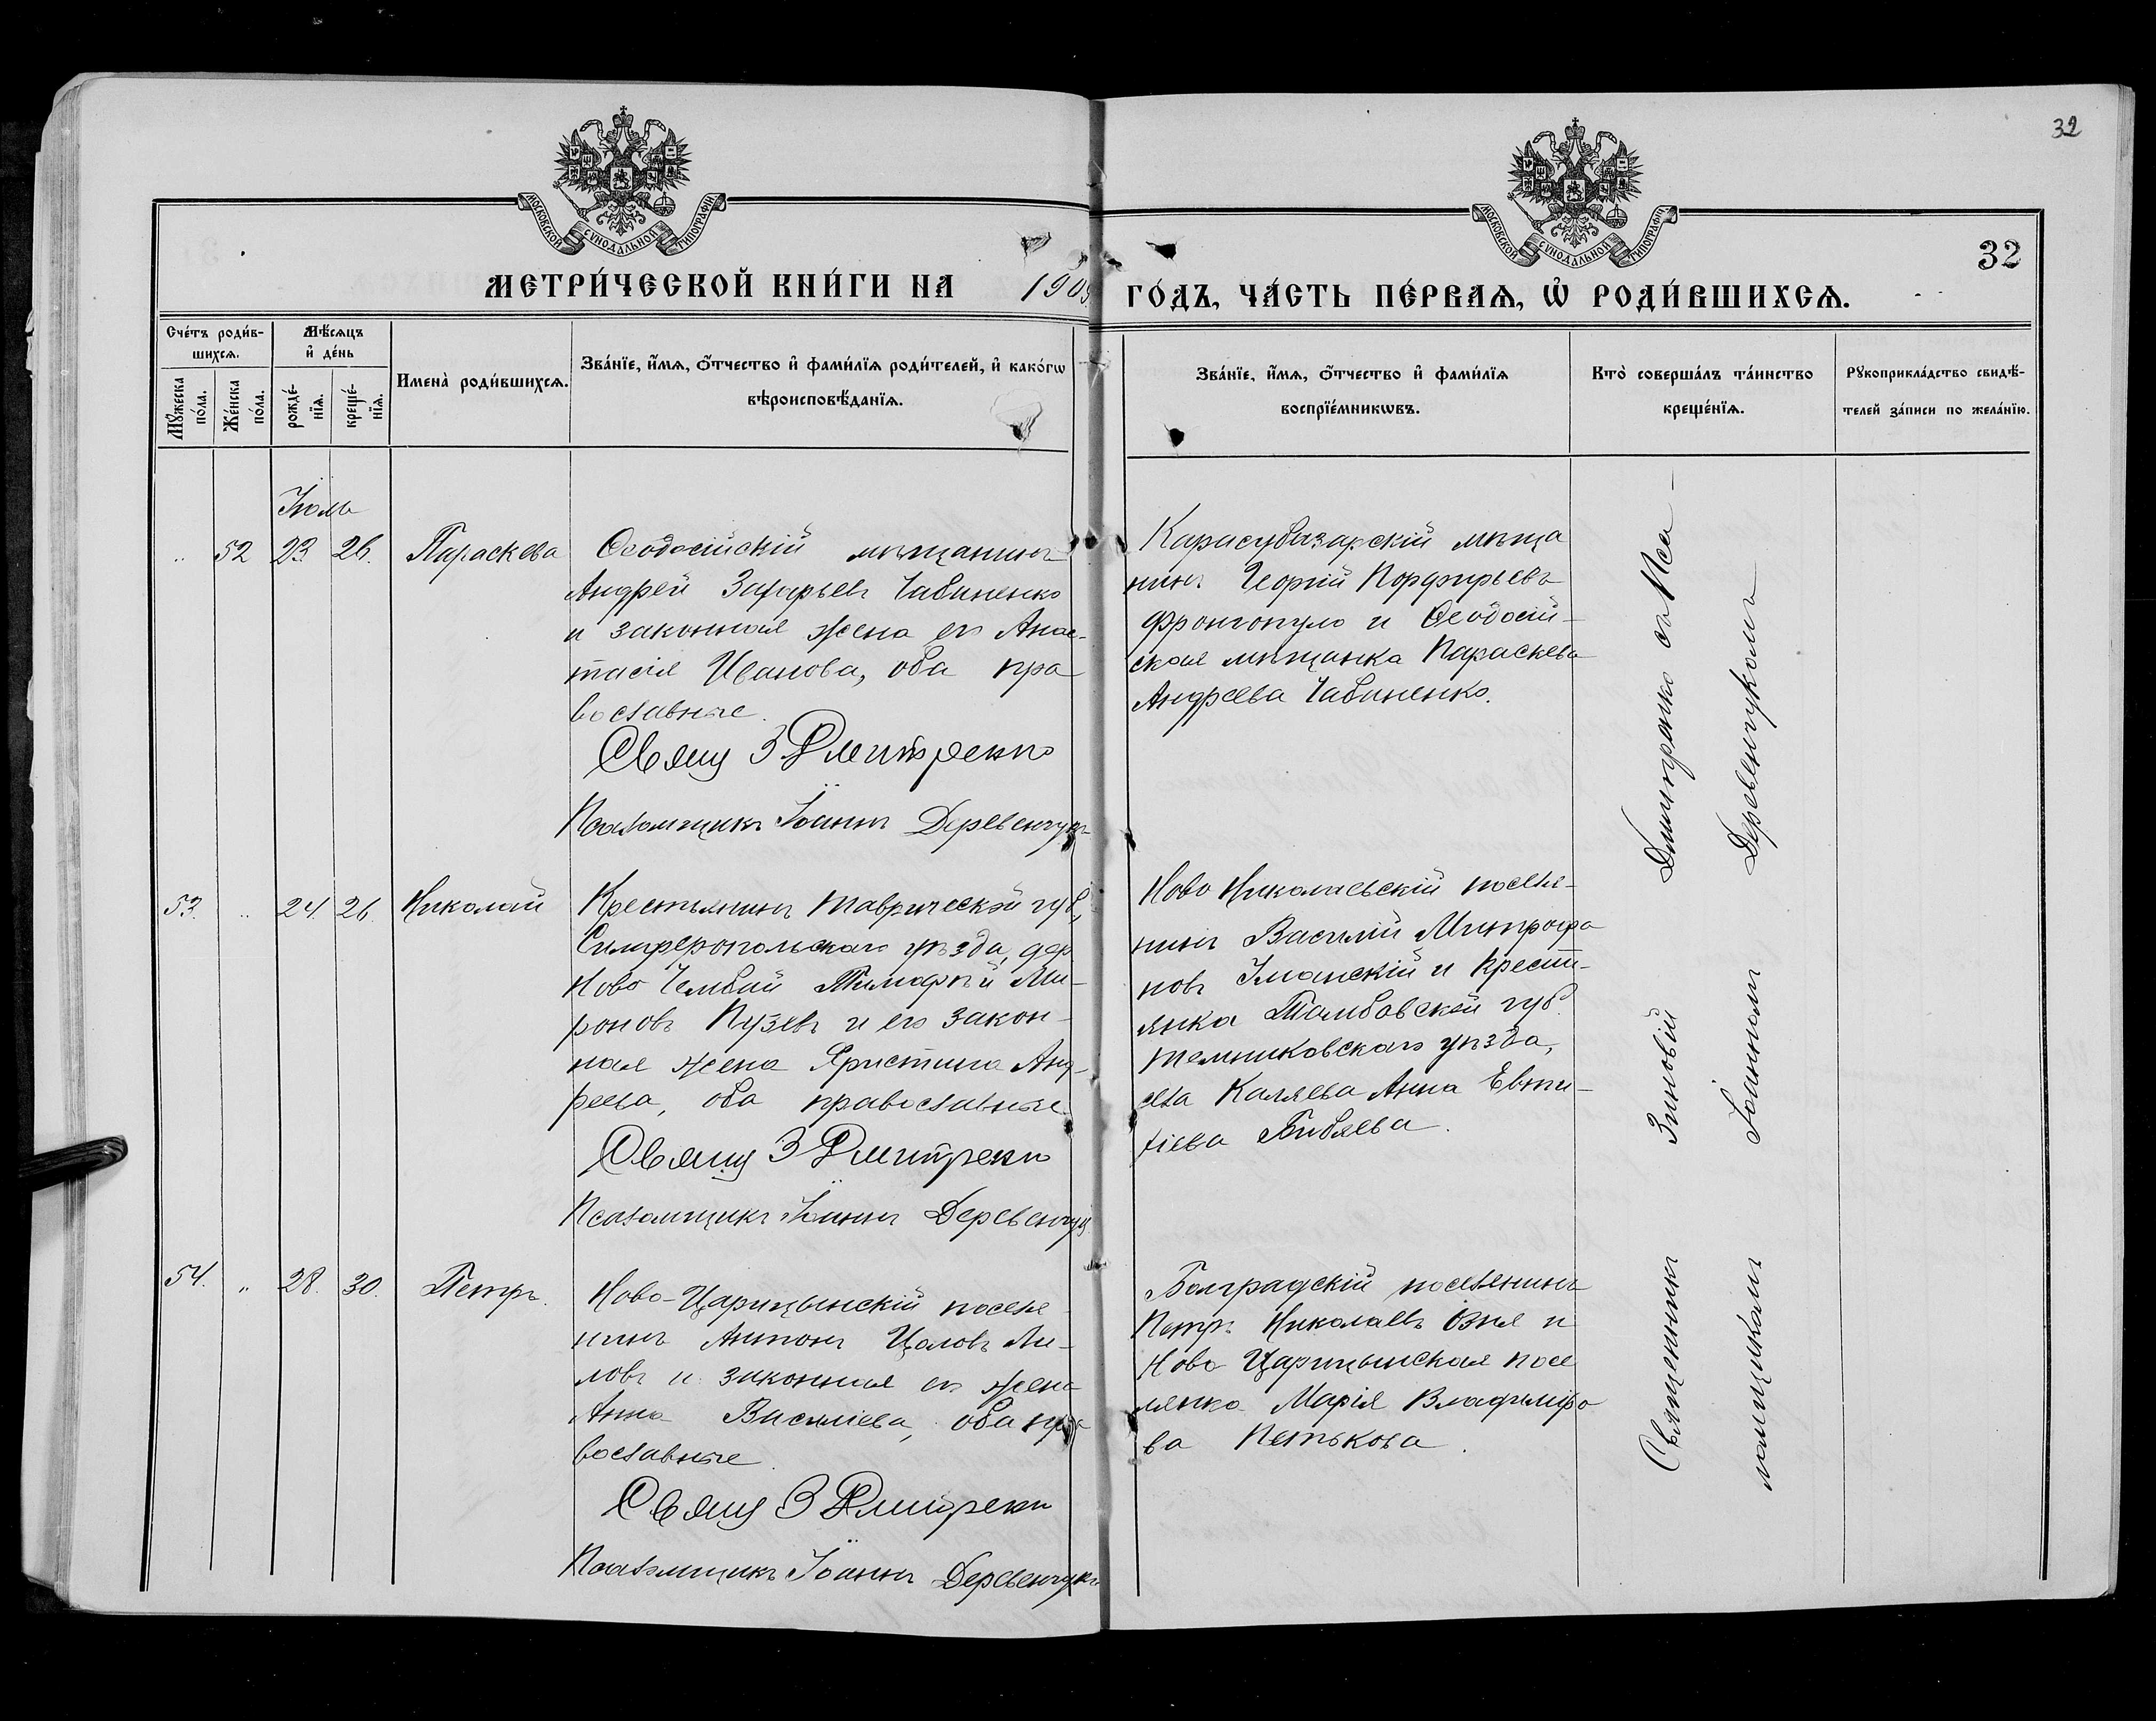 32
МОСКОВСКОЙ СѴНОДАЛЬНОЙ ТИПОГРАФІИ
МОСКОВСКОЙ СѴНОДАЛЬНОЙ ТИПОГРАФІИ
32
МЕТРИ́ЧЕСКОЙ КНИ́ГИ НА 1909 ГО́ДЪ, ЧА́СТЬ ПЕ́РВАѦ, Ѡ҆ РОДИ́ВШИХСѦ.
Сче́тъ роди́в-
шихсѧ.
Мꙋ́жеска по́ла.
Же́нска по́ла.
Мѣ́сѧцъ
и҆ де́нь
рожде́-
нїѧ.
креще́-
нїѧ.
Имена̀ роди́вшихсѧ.
Зва́нїе, и҆́мѧ, ѻ҆́тчество и҆ фами́лїѧ роди́телей, и҆ како́гѡ
вѣроисповѣ́данїѧ.
Зва́нїе, и҆́мѧ, ѻ҆́тчество и҆ фами́лїѧ
воспрїе́мникѡвъ.
Кто̀ соверша́лъ та́инство
креще́нїѧ.
Рꙋкоприкла́дство свидѣ́-
телей за́писи по жела́нїю.
Іюль
" 52 23. 26. Параскева
Ѳеодосійскій мѣщанинъ
Андрей Захарьевъ Чабаненко
и законная жена его Анас-
тасія Иванова, оба пра
вославные.
Свящ З Дмитренко
Псаломщикъ Іоаннъ Деревенчукъ
Карасубазарскій мѣща
нинъ Георгій Порфирьевъ
Фронгопуло и Ѳеодосій-
ская мѣщанка Параскева
Андреева Чабаненко.
53. " 24. 26. Николай
Крестьянинъ Таврической губ.,
Симферопольскаго уѣзда, дер.
Ново Чембай Тимофей Ми-
роновъ Пузевъ и его закон-
ная жена Христина Анд-
реева, оба православные.
Свящ З Дмитренко
Псаломщикъ Іоаннъ Деревенчук
Ново Николаевскій поселя-
нинъ Василій Митрофа
новъ Уманскій и крестѣ-
янка Тамбовской губ.
Темниковскаго уѣзда,
села Каляева Анна Евти-
хіева Бибяева.
54. " 28. 30. Петръ.
Ново-Царицынскій поселя
нинъ Антонъ Цоловъ Ли-
ловъ и законная его жена
Анна Василіева, оба пра
вославные.
Свящ З Дмитренко
Псаломщикъ Іоаннъ Деревенчукъ
Болградскій поселянинъ
Петръ Николаевъ и
Ново Царицынская посе
лянка Марія Владиміро
ва Петькова.
Священникъ Зиновій Дмитренко съ Пса-
ломщикомъ Іоанномъ Деревенчукомъ